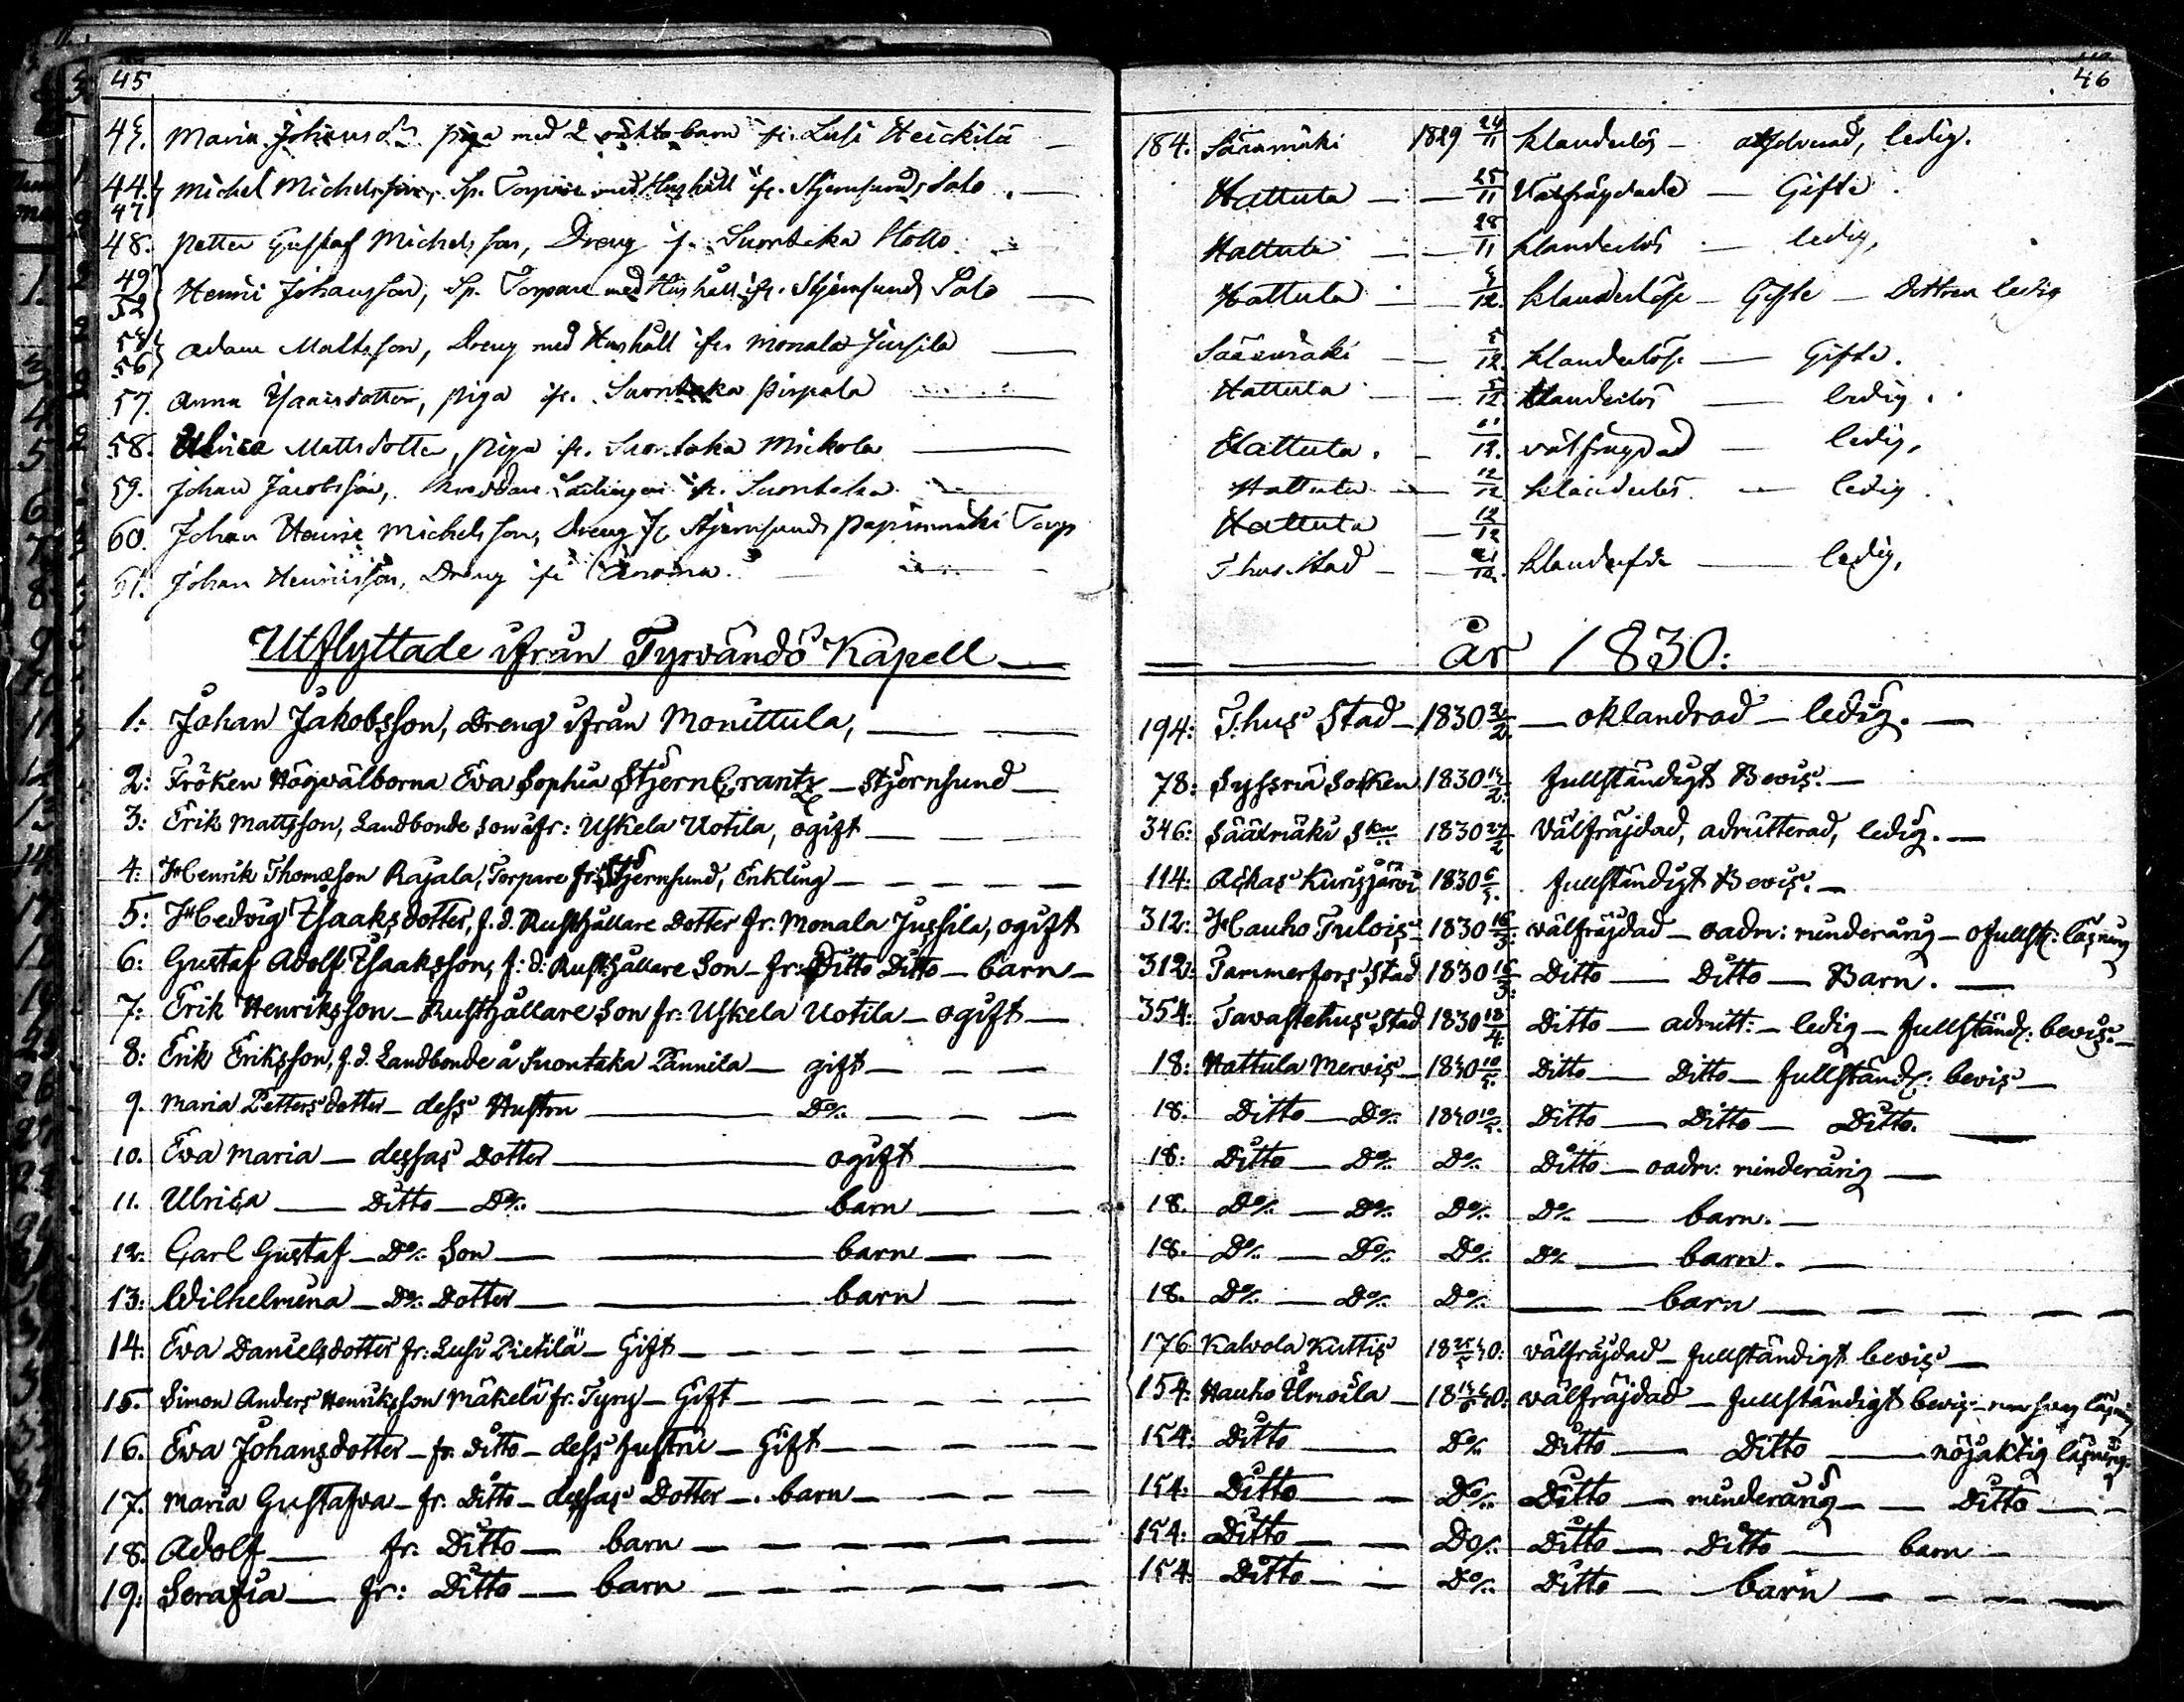 45
43. Maria Johansdr piga med 2 oäkta barn fr. Lusi Heickilä
44. 47 Michel Michelsson, Sp. Torpare med Hushåll ifr. Stjernsunds Salo
48. Petter Gustaf Michelsson, Dreng if. Suontaka
49 52 Henric Johansson, Sp. Torpare med Hushåll ifr. Stjernsunds Salo
53 56 Adam Mattsson, Dreng med Hushåll ifr. Monala Jussila
57. Anna Isaacsdotter, piga ifr. Suontaka Pirpala
58. Ulrica Mattsdotter, piga ifr. Suontaka Mickola
59. Johan Jacobsson, ifr. Suontaka
60. Johan Henric Michelsson, Dreng if. Stjernsunds Papinmäki Torp
61. Johan Henricsson, Dreng ifr.
Utflyttade ifrån Tyrvändö Kapell
1: Johan Jakobsson, Dreng ifrån Monittula,
2: Fröken Högwälborna Eva Sophia StjernCrantz — Stjernsund
3: Erik Mattsson, Landbonde Son ifr: Uskela Uotila, ogift
4: Henrik Thomæson Rajala, Torpare fr: Stjernsund, Enkling
5: Hedvig Isaaksdotter, f. d. Rusthållare Dotter fr. Monala Jussila, ogift
6: Gustaf Adolf Isaaksson, f: d: Rusthållare Son — fr: Ditto Ditto — barn
7: Erik Henriksson — Rusthållare Son fr: Uskela Uotila — ogift
8: Erik Eriksson, f. d. Landbonde å Suontaka Pannila — gift
9. Maria Pettersdotter — dess Hustru — Do/:
10. Eva Maria — dessas Dotter — ogift
11. Ulrica — Ditto — Do/: — barn
12: Carl Gustaf — Do/: Son — barn
13: Wilhelmina — Do/: Dotter — barn
14: Eva Danielsdotter fr: Lusi Pietilä — Gift
15. Simon Anders Henriksson Mäkelä fr: Tyry — Gift
16. Eva Johansdotter — fr. Ditto — dess hustru — Gift
17. Maria Gustafva — fr. Ditto — dessas Dotter — barn
18. Adolf — fr. Ditto — barn
19: Serafia — fr: Ditto — barn
46
184. Sääxmäki 1829 24/11 klanderlös — ledig.
Hattula — 25/11 Välfräjdade — Gifte
Hattula — 28/11 klanderlös — ledig,
Hattula — 12. klanderlöse — Gifte — Dottren ledig
Sääxmäki — 5/12. klanderlöse — Gifte.
Hattula — 5/12. klanderlös — ledig.
Hattula. — 12. välfräjdad — ledig,
Hattula — 12/12 klanderlös — ledig.
Hattula — 12/12
T:hus Stad — 21/12. — ledig,
år 1830:
194: T:hus Stad — 1830 2. — oklandrad — ledig.
78: Syssmä Socken 1830 2. fullständigt Bevis.
346: Sääxmäki Skn 1830 27/2 Välfräjdad, admitterad, ledig.
114: Ackas Kurisjärvi 1830 fullständigt Bevis.
312: Hauho Tulois — 1830 16/3: välfräjdad — oadm: minderårig — ofullst: läsning
312: Tammerfors Stad 1830 16/3: Ditto — Ditto — Barn.
354: Tavastehus Stad 1830 18/4. Ditto — admitt: — ledig — fullständ: bevis.
18: Hattula Mervis — 1830 10/5. Ditto — Ditto — fullständ: bevis
18. Ditto — Do/: 1830 10/5. Ditto — Ditto — Ditto.
18: Ditto — Do/: Do/: Ditto — oadm: minderårig
18. Do/: — Do/: Do/: Do/: — barn.
18. Do/: — Do/: Do/: Do/: — barn.
18. Do/: — Do/: Do/: — barn
176 Kalvola Kuttis 18 25/5 30: välfräjdad — fullständigt bevis
154: Hauho — 18 30: välfräjdad — fullständigt bevis — men svag läsning
154: Ditto — Do/: Ditto — Ditto — nöjaktig läsning.
154: Ditto — Do/: Ditto — minderårig — Ditto
154: Ditto — Do/: Ditto — Ditto — barn
154: Ditto — Do/: Ditto — barn